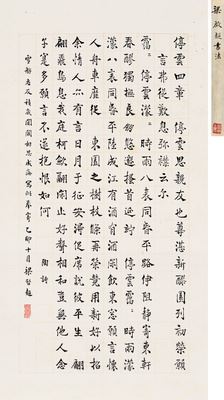 停雲四章 停雲思親友也罇湛新醪園列初榮願
言弗從歎息彌襟云尔
靄〻停雲濛〻時雨八表同昏平路伊阻靜寄東軒
春醪獨撫良朋悠邈搔首延佇 停雲靄〻時雨濛
濛八表同昏平陸成江有酒有酒閒飲東窗願言懷
人舟車靡從 東園之樹枝條再榮競用新好以招
余情人亦有言日月于征安得促席說彼平生 翩
翩飛鳥息我庭柯斂翮閒止好聲相和豈無他人念
子寔多願言不獲抱恨如何 陶詩
乙卯十月 梁啓超
梁啟超書法